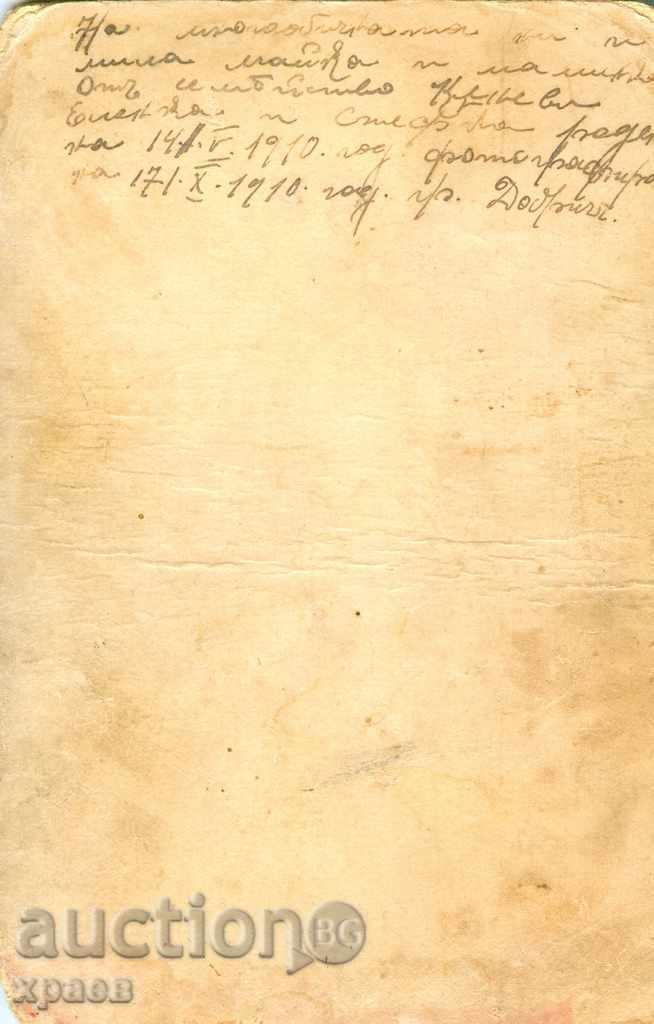 На многообичната ни и
мила майка и мамичка
Отъ семейство Куневи
Еленка и Стефка роден
на 14/V. 1910. год. фотографира
на 17/X. 1910. год. гр. Добричъ.
auction BG
храев